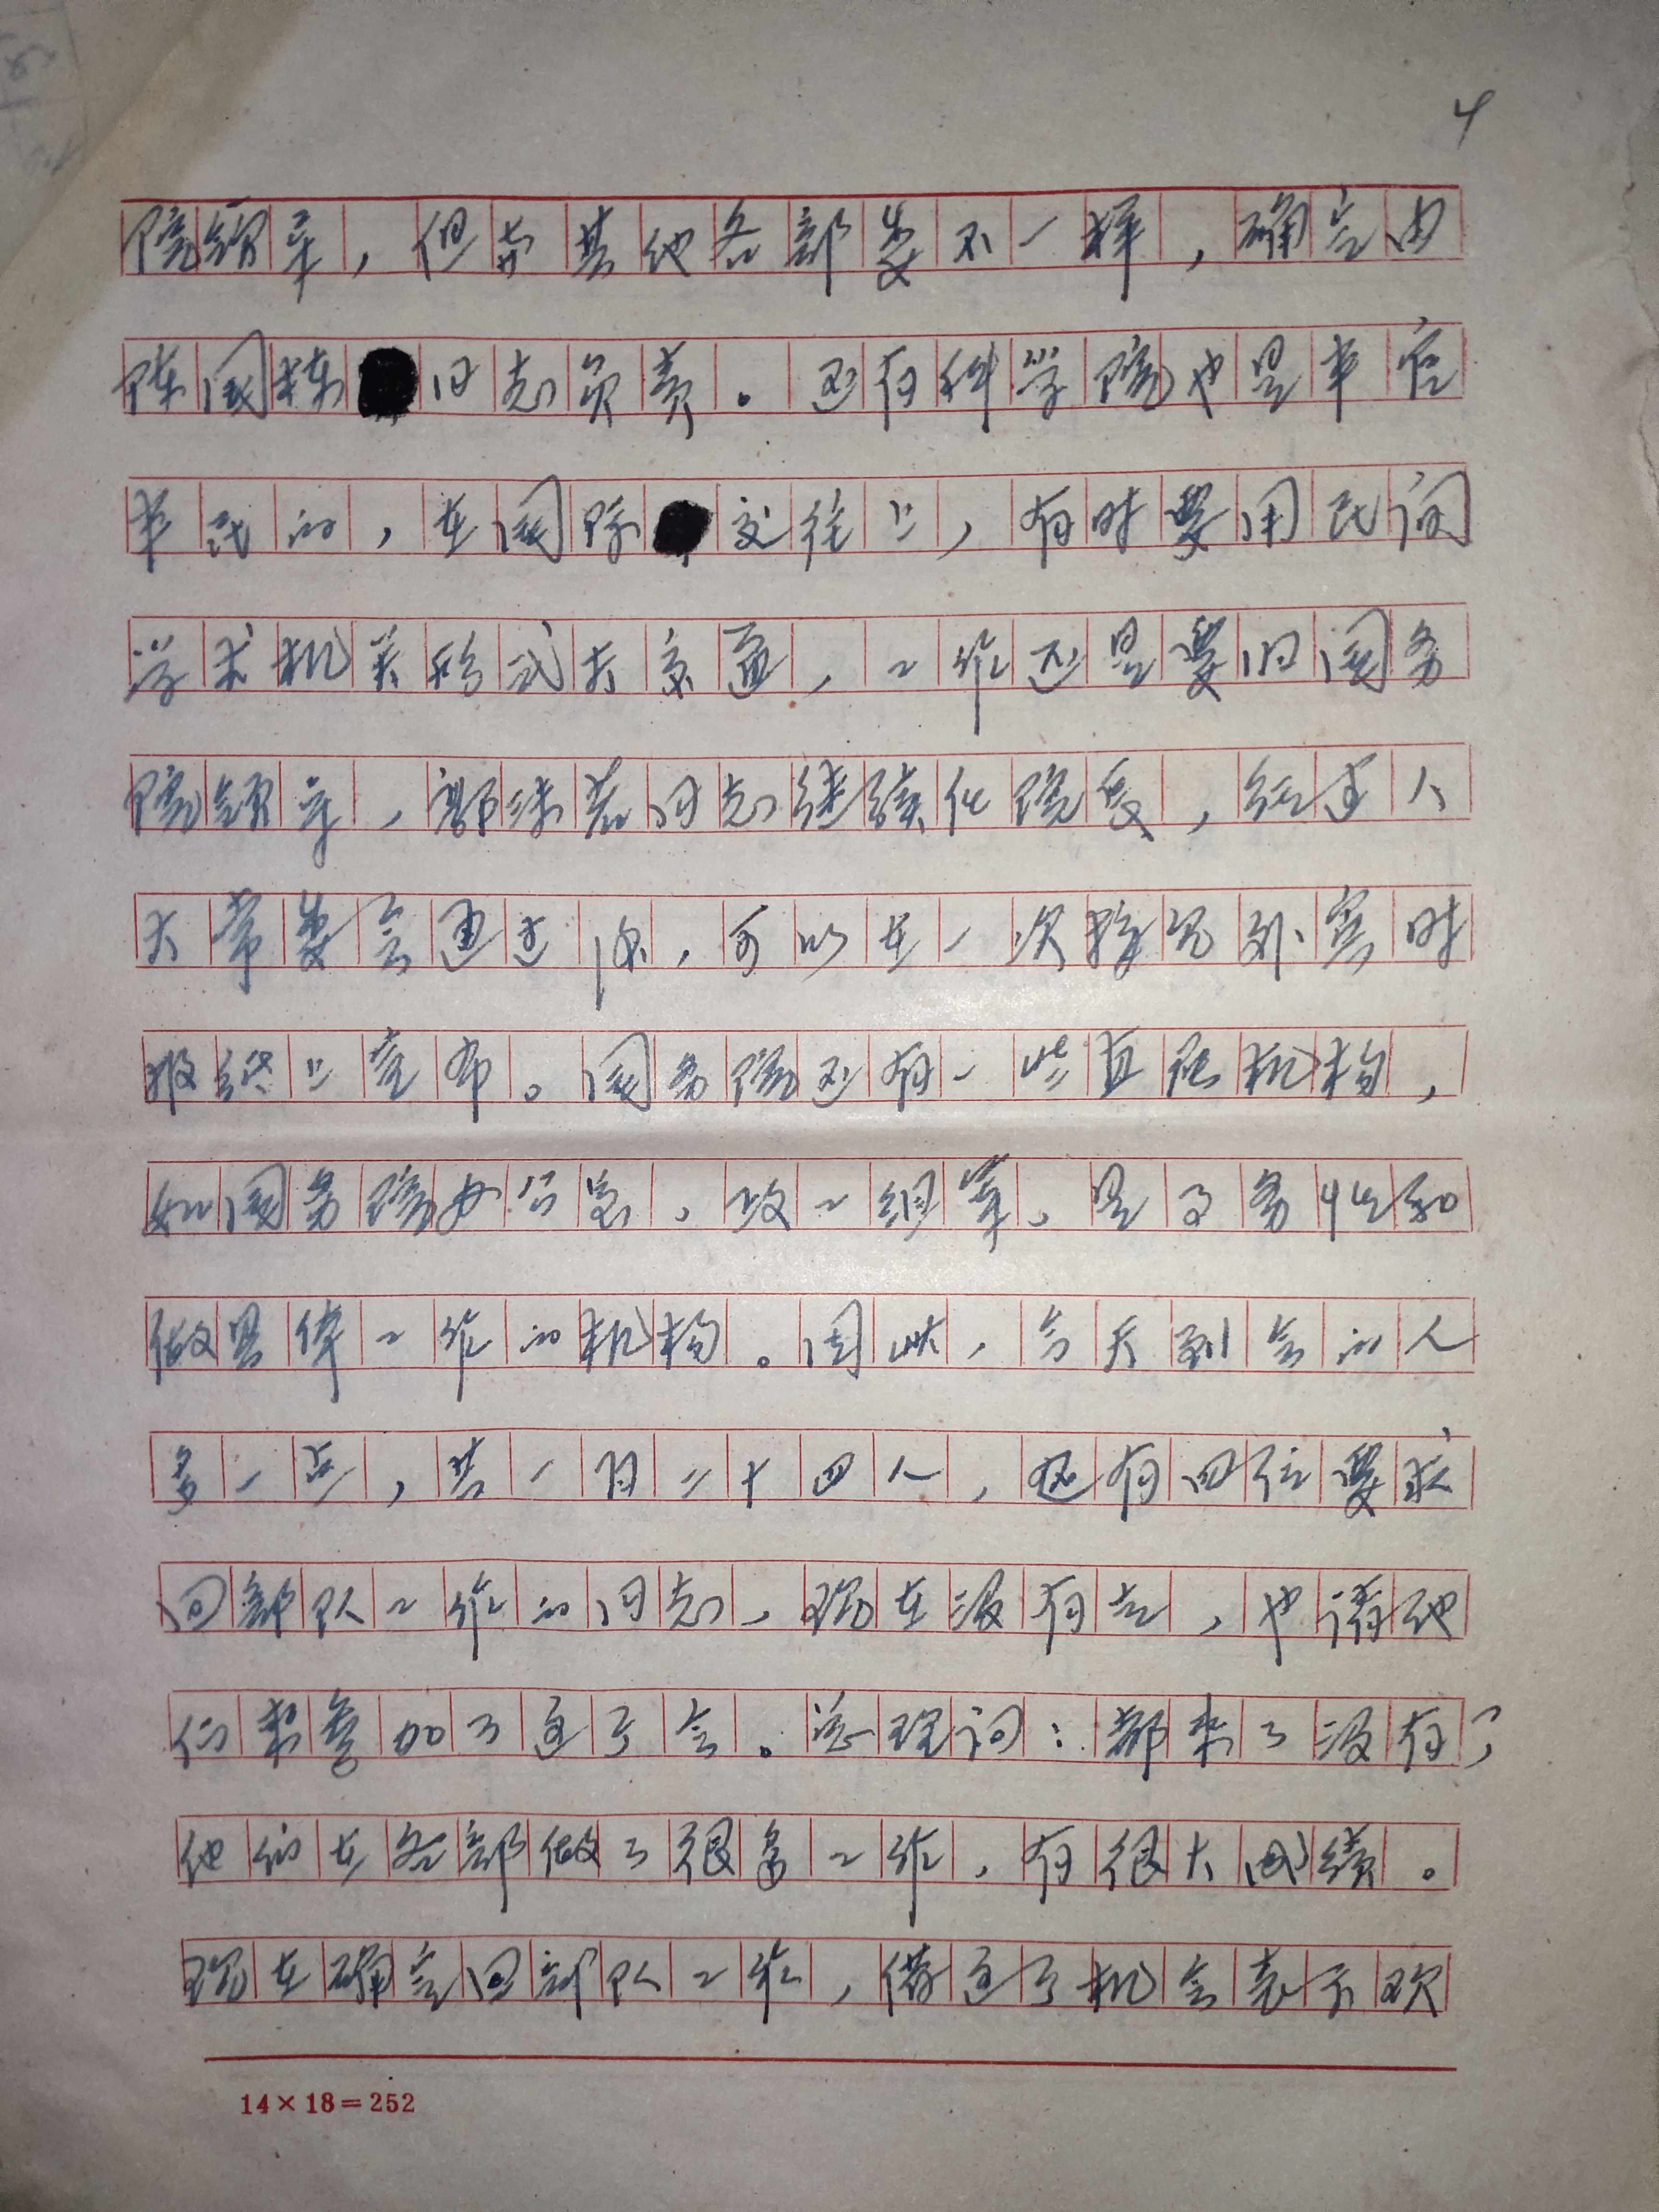 4
院领导，但与其他各部委不一样，确定由
陈国栋同志负责。还有科学院也是半官
半民的，在国际交往上，有时要用民间
学术机关形式去交通，工作还是要归国务
院领导，郭沫若同志继续任院长，经过人
大常委会通过后，可以在一次接见外宾时
报纸上宣布。国务院还有一些直属机构，
如国务院办公室、政工组等，是事务性和
做具体工作的机构。因此，今天到会的人
多一点，共一百二十四人，还有四位要求
回部队工作的同志，现在没有走，也请他
们来参加了这个会。总理问：都来了没有？
他们在各部做了很多工作，有很大成绩。
现在确定回部队工作，借这个机会表示欢
14×18=252